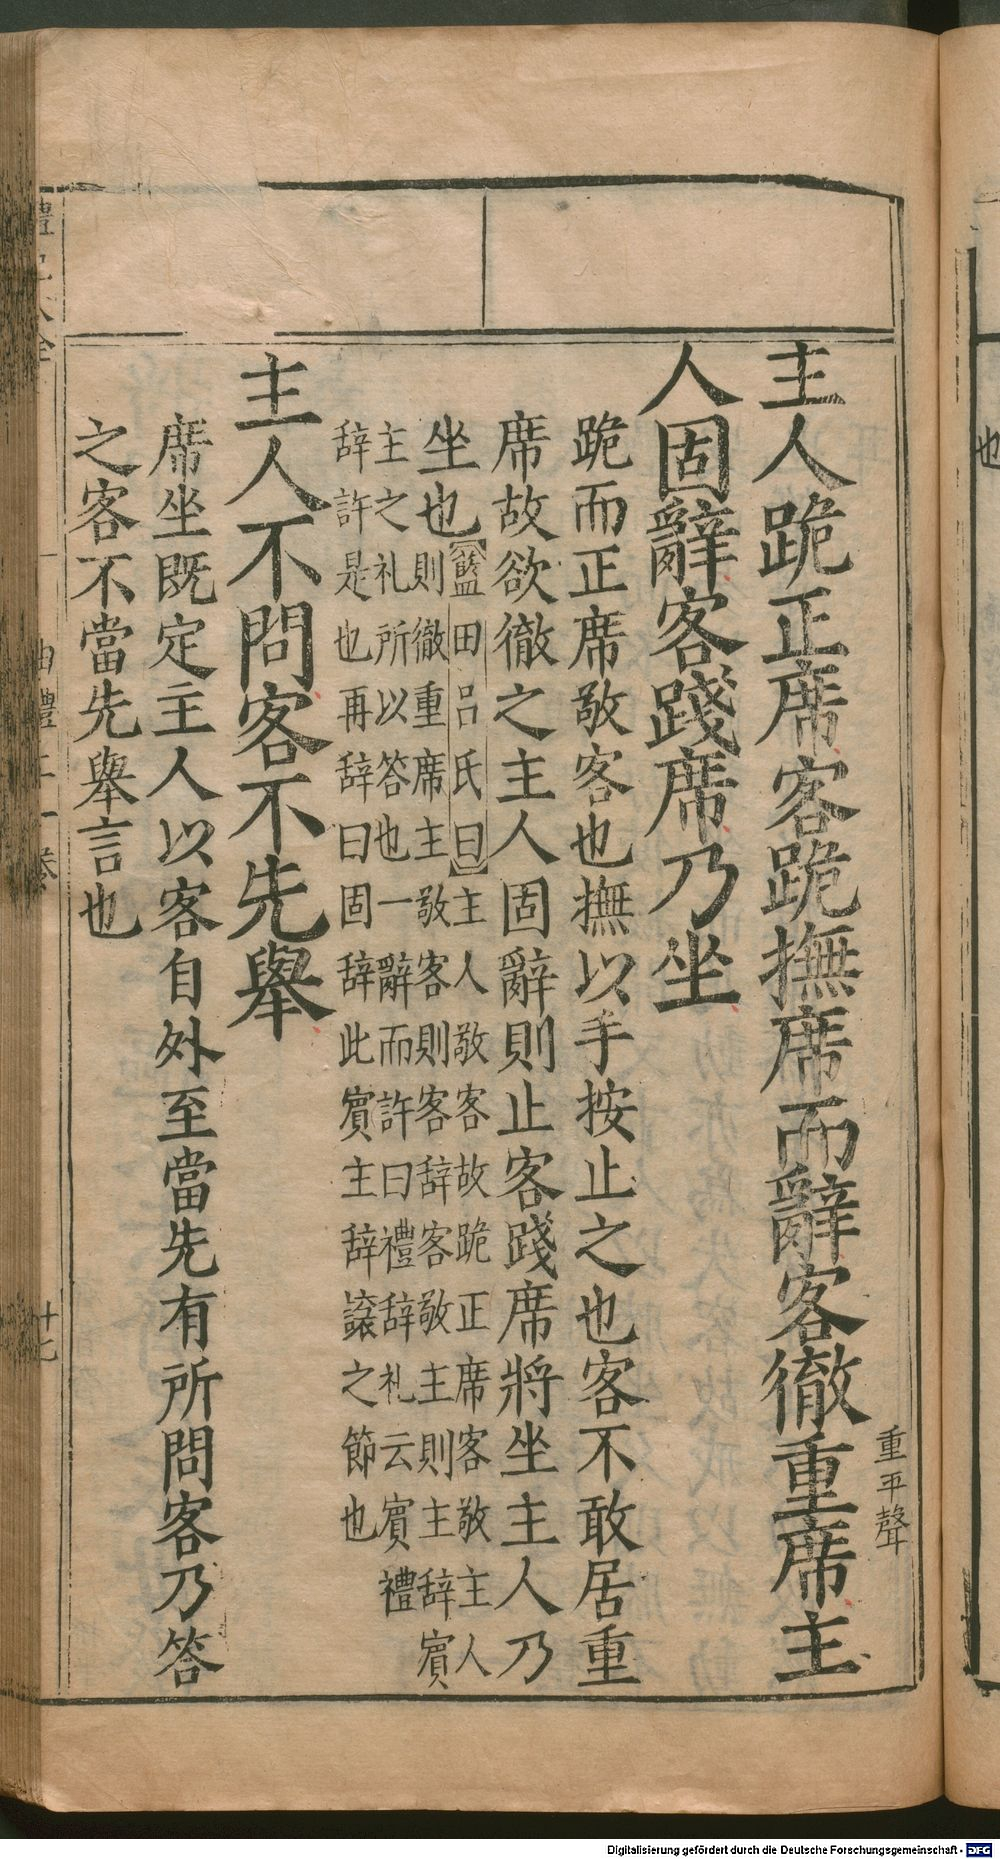 主人跪正席客跪撫席而辭客徹重席主
重平聲
人固辭客踐席乃坐
跪而正席敬客也撫以手按止之也客不敢居重
席故欲徹之主人固辭則止客踐席將坐主人乃
坐也
【藍田呂氏曰】主人敬客故跪正席客敬主人
則徹重席主敬客則客辞客敬主則主辞賓
主之礼所以答也一辭而許曰禮辞礼云賓禮
辞許是也再辞曰固辞此賓主辞讓之節也
主人不問客不先舉
席坐既定主人以客自外至當先有所問客乃答
之客不當先舉言也
十七
也
Digitalisierung gefördert durch die Deutsche Forschungsgemeinschaft - DFG